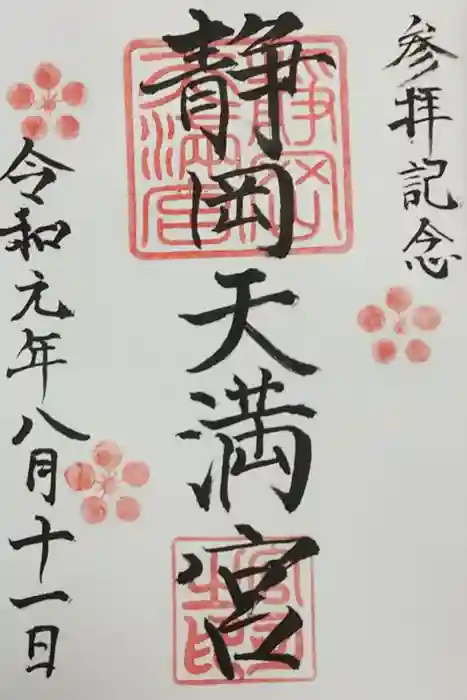 参拝記念
静岡天満宮
令和元年八月十一日